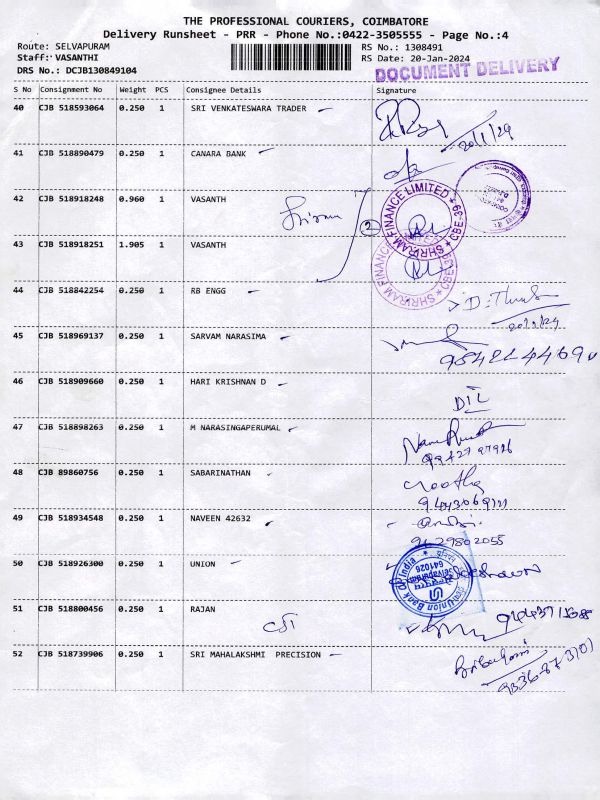 THE PROFESSIONAL COURIERS, COIMBATORE
Delivery Runsheet - PRR - Phone No.:0422-3505555 - Page No.:4
Route: SELVAPURAM
RS No.: 1308491
Staff: VASANTHI
RS Date: 20-Jan-2024
DRS No.: DCJB130849104
DOCUMENT DELIVERY
S No Consignment No Weight PCS Consignee Details Signature
40 CJB 518593064 0.250 1 SRI VENKATESWARA TRADER
20/1/24
41 CJB 518890479 0.250 1 CANARA BANK
42 CJB 518918248 0.960 1 VASANTH
2
SHRIRAM FINANCE LIMITED ★ CBE-39 ★
43 CJB 518918251 1.905 1 VASANTH
SHRIRAM FINANCE
44 CJB 518842254 0.250 1 RB ENGG
20/1/24
45 CJB 518969137 0.250 1 SARVAM NARASIMA
46 CJB 518909660 0.250 1 HARI KRISHNAN D
DIL
47 CJB 518898263 0.250 1 M NARASINGAPERUMAL
48 CJB 89860756 0.250 1 SABARINATHAN
49 CJB 518934548 0.250 1 NAVEEN 42632
9629802055
50 CJB 518926300 0.250 1 UNION
Union Bank Of India
Selvapuram
641026
51 CJB 518800456 0.250 1 RAJAN
52 CJB 518739906 0.250 1 SRI MAHALAKSHMI PRECISION